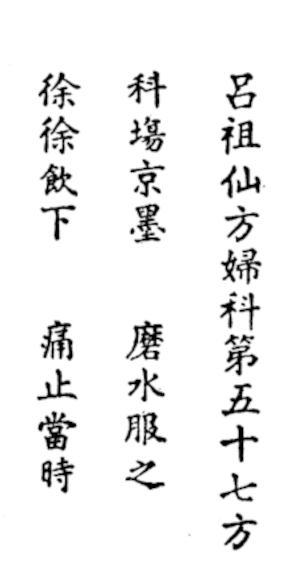 呂祖仙方婦科第五十七方
科塲京墨　磨水服之
徐徐飲下　痛止當時